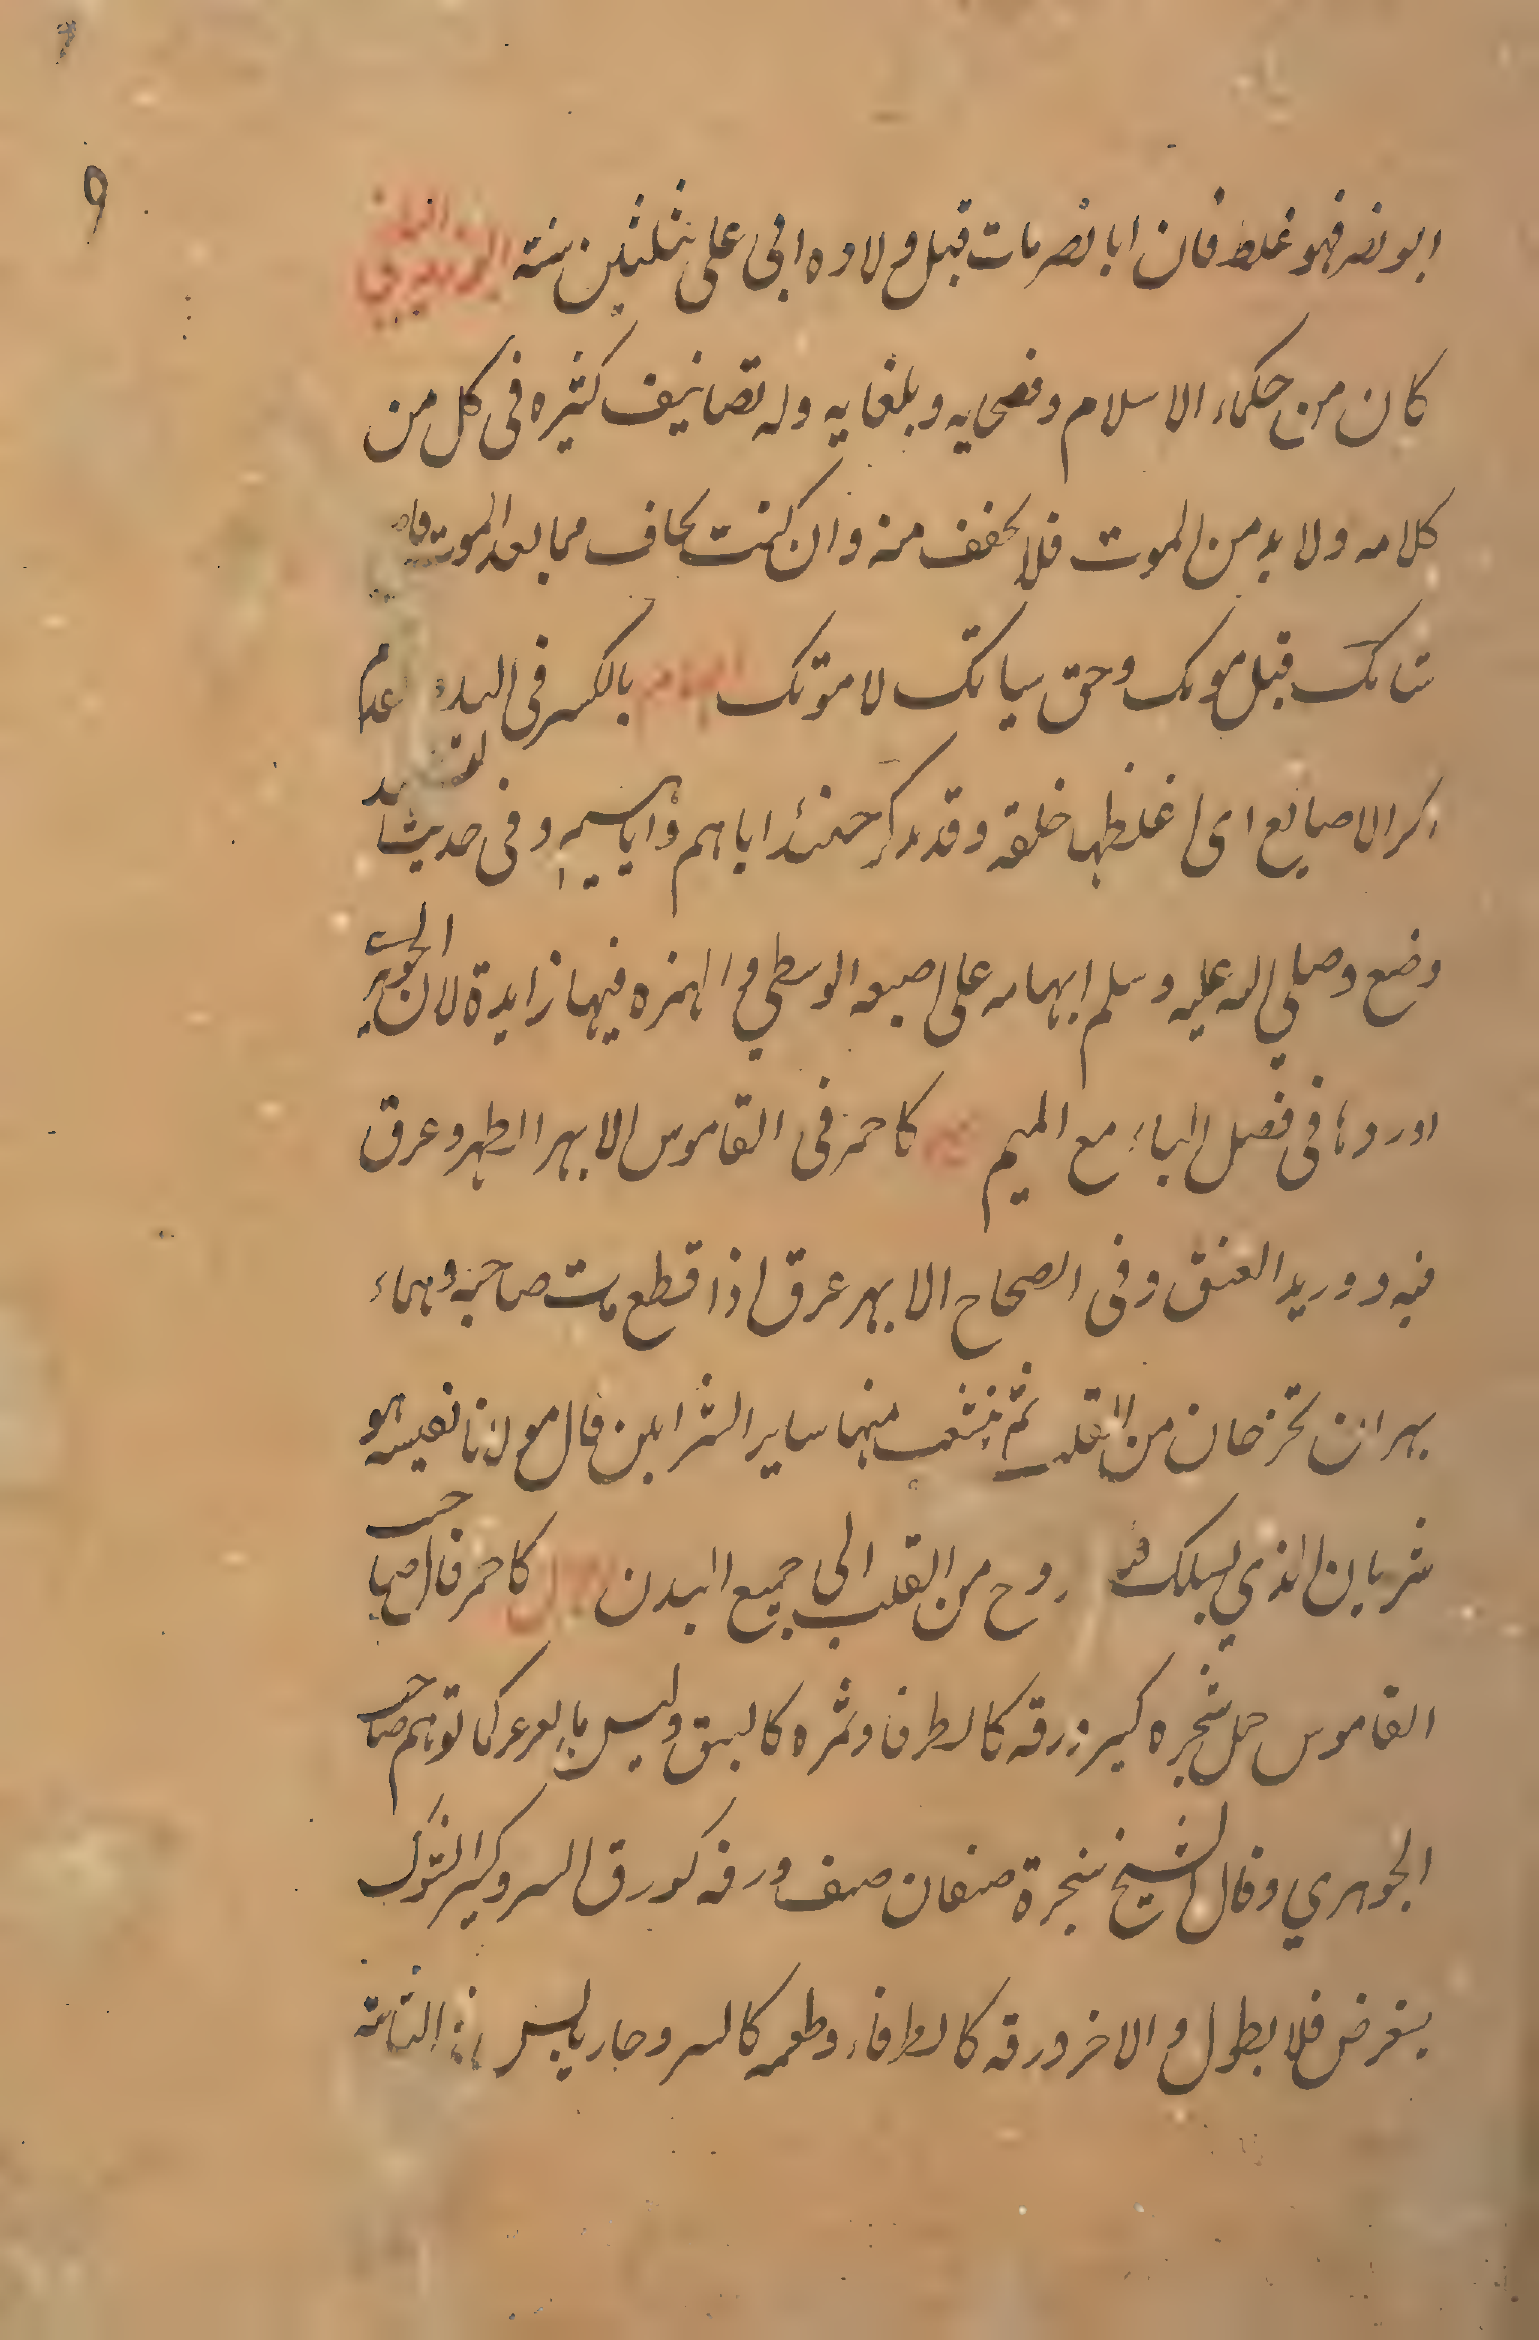 ٩
ابو نصر فهو غلط فان ابا نصر مات قبل ولاده ابى على بثلثين سنة
كان من حكماء الاسلام وفصحايه وبلغايه وله تصانيف كثيره فى كل من
كلامه ولا بد من الموت فلا تخف منه وان كنت تخاف مما بعد الموت
شانك قبل موتك وحق سياتك لا موتك بالكسر فى اليد
اكبر الاصابع اى اغلظها خلقة وقد يذكر جمعه اباهم واباهيم وفى حديث
وضع وصلى الله عليه وسلم ابهامه على اصبعه الوسطي والهمزه فيها زايدة لان الجوهري
اوردها فى فصل الباء مع الميم كاحمر فى القاموس الابهر الظهر وعرق
فيه ووريد العنق وفى الصحاح الابهر عرق اذا قطع مات صاحبه وهماء
بهران تخرجان من القلب ثم يتشعب منهما ساير الشرايين قال مولانا نفيس هو
شريان الذي يسلك فيه روح من القلب الى جميع البدن كاحمر قال صاحب
القاموس حمل شجره كبير ورقه كالطرفا وثمره كالنبق وليس بالعرعر كما توهم صاحب
الجوهري وقال الشيخ شجرة صنفان صنف ورقه كورق السرو كثير الشوك
يتعرض فلا يطول والاخر ورقه كالطرفاء وطعمه كالسرو حار يابس فى الثالثة